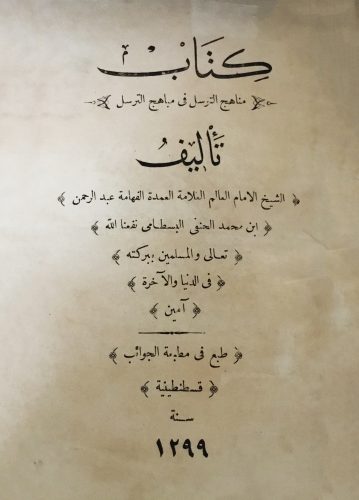 كتاب
مناهج الترسل فى مباهج الترسل
تأليف
الشيخ الامام العالم العلامة العمدة الفهامة عبد الرحمن
ابن محمد الحنفى البسطامى نفعنا الله
تعالى والمسلمين ببركته
فى الدنيا والآخرة
آمين
طبع فى مطبعة الجوائب
قسطنطينية
سنة
١٢٩٩